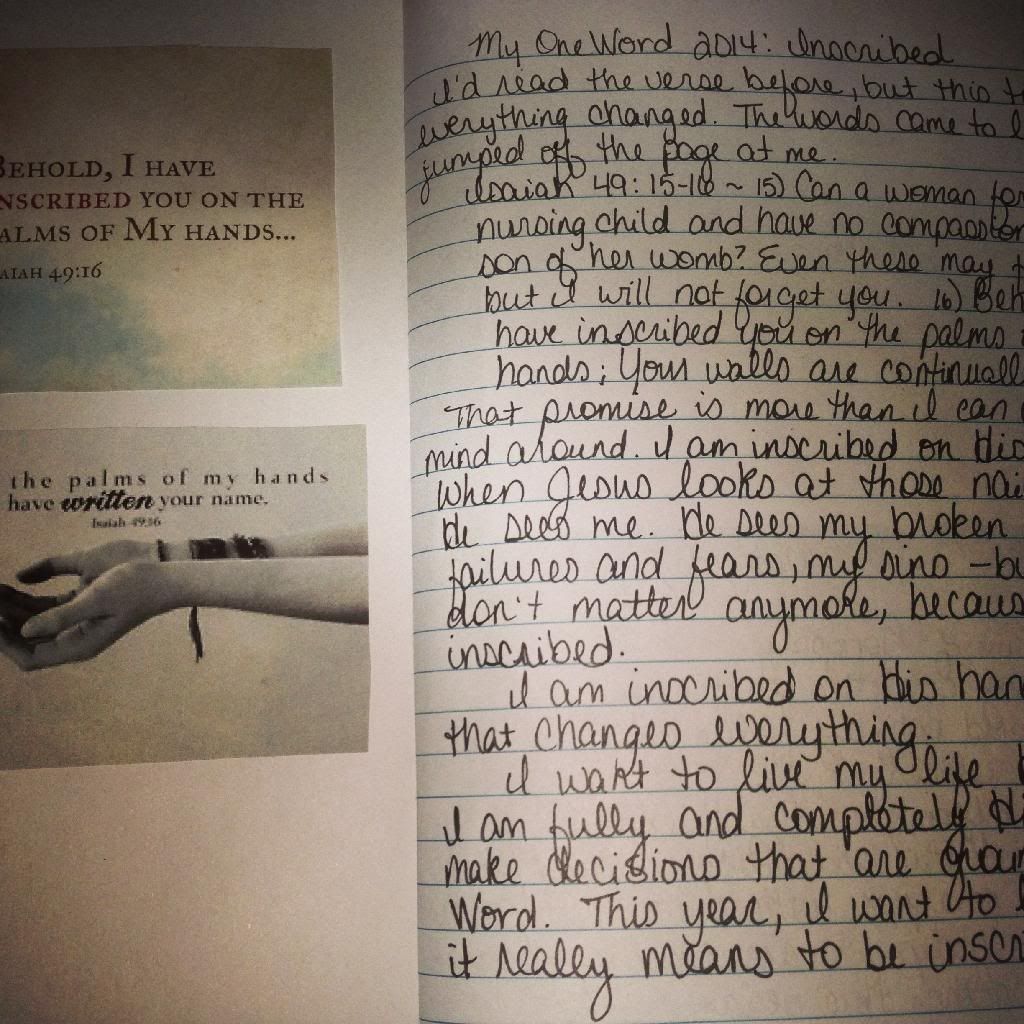 BEHOLD, I HAVE
INSCRIBED YOU ON THE
PALMS OF MY HANDS...
ISAIAH 49:16
the palms of my hands
have written your name.
Isaiah 49:16
My One Word 2014: Inscribed
I'd read the verse before, but this
everything changed. The words came to
jumped off the page at me.
Isaiah 49:15-16 ~ 15) Can a woman
nursing child and have no compassion
son of her womb? Even these may
but I will not forget you. 16)
have inscribed you on the palms
hands; Your walls are
That promise is more than I can
mind around. I am inscribed on His
When Jesus looks at those
He sees me. He sees my broken
failures and fears, my sins -
don't matter anymore,
inscribed.
I am inscribed on His
that changes everything.
I want to live my life
I am fully and completely
make decisions that are
Word. This year, I want to
it really means to be